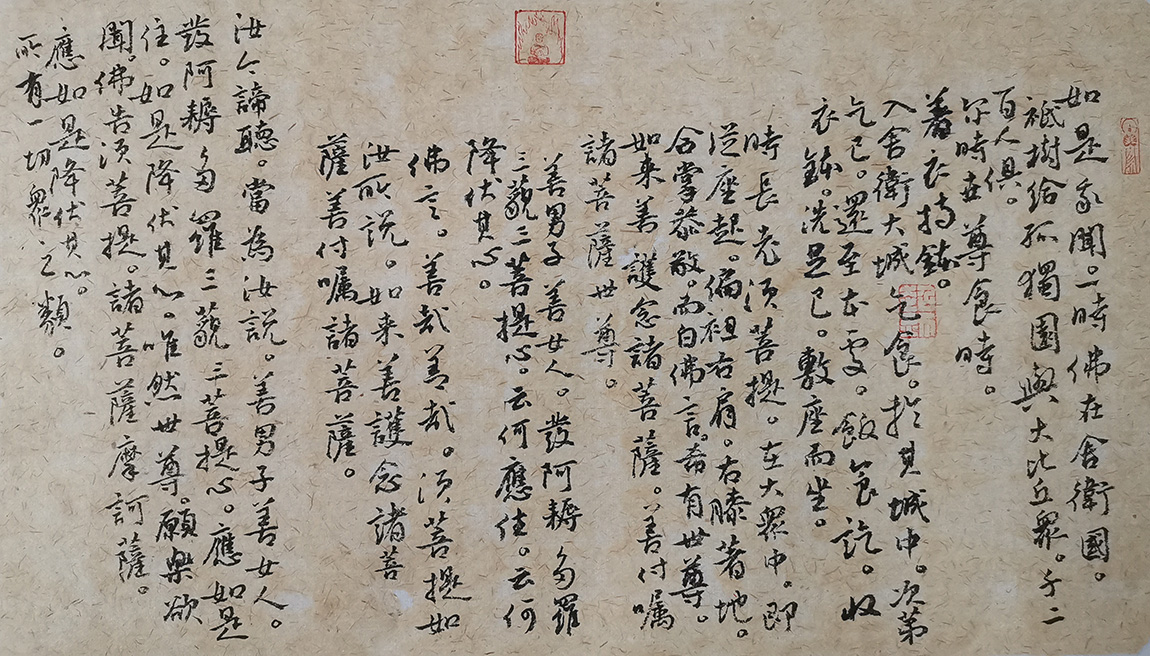 如是我聞。一時佛在舍衛國。
祗樹給孤獨園與大比丘眾。千二
百人俱。
尔時世尊食時。
着衣持鉢。
入舍衛大城乞食。於其城中。次第
乞已。還至本處。飯食訖。收
衣鉢。洗足已。敷座而坐。
時長老須菩提。在大眾中。即
從座起。偏袒右肩。右膝著地。
合掌恭敬。而白佛言。希有世尊。
如来善護念諸菩薩。善付囑
諸菩薩世尊。
善男子善女人。發阿耨多羅
三藐三菩提心。云何應住。云何
降伏其心。
佛言。善哉善哉。須菩提如
汝所說。如来善護念諸菩
薩善付囑諸菩薩。
汝今諦聽。當為汝說。善男子善女人。
發阿耨多羅三藐三菩提心。應如是
住。如是降伏其心。唯然世尊。願樂欲
聞。佛告須菩提。諸菩薩摩訶薩。
應如是降伏其心。
所有一切眾之類。